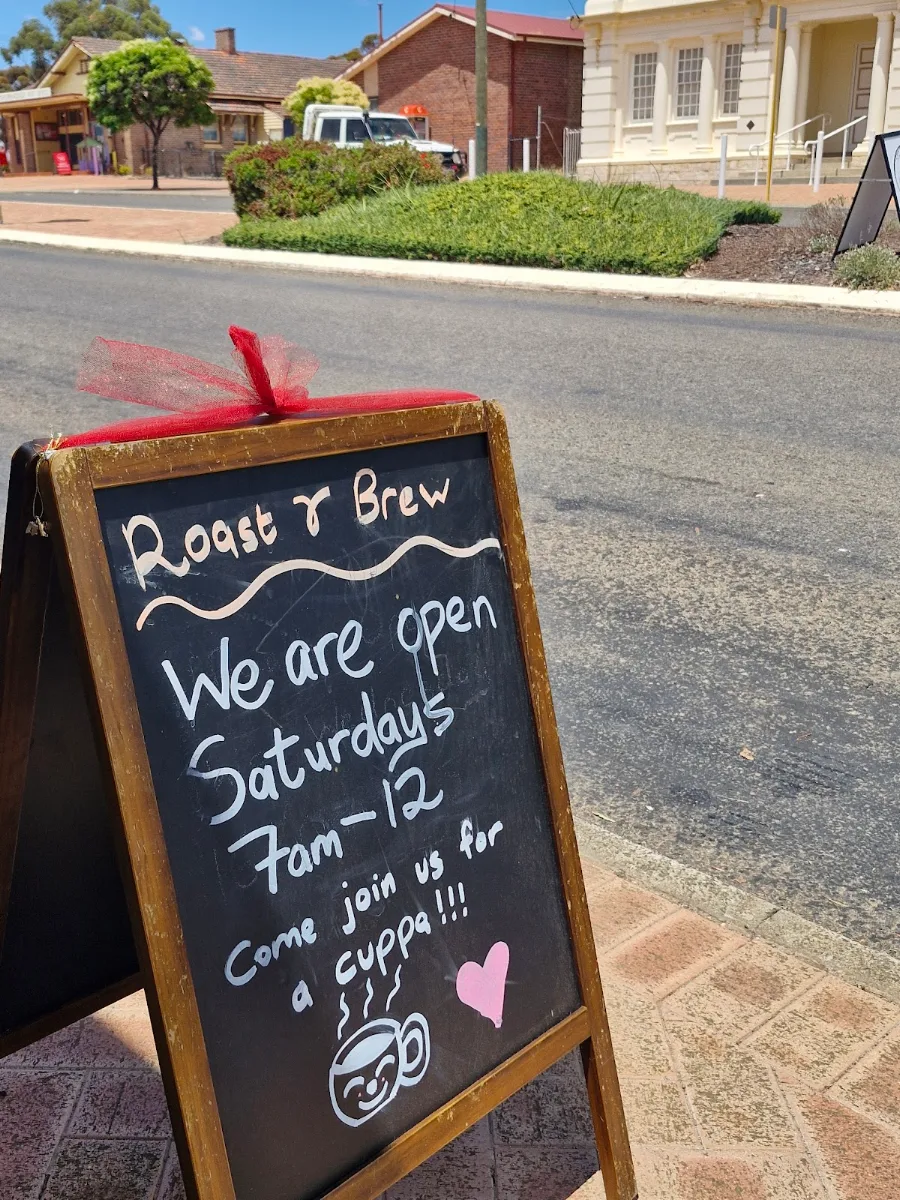 Roast & Brew
We are open
Saturdays
7am-12
Come join us for
a cuppa!!!